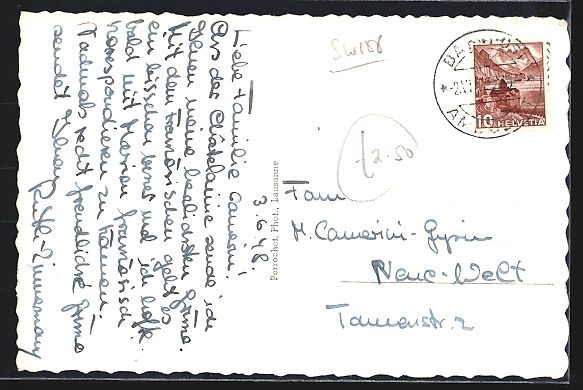 3.6.48.
Liebe Familie Camerini!
Aus der Châtelaine sende ich
Ihnen meine herzlichsten Grüsse.
Mit dem französischen geht es
ein bisschen besser und ich hoffe
bald mit Marion französisch
korrespondieren zu können.
Nochmals recht freundliche Grüsse
sendet Ihnen
Ruth Zimmermann
Perrochet, Phot., Lausanne
SWISS
£2.50
10 HELVETIA
Fam
M. Camerini-Gysin
Neue-Welt
Tannenstr. 2